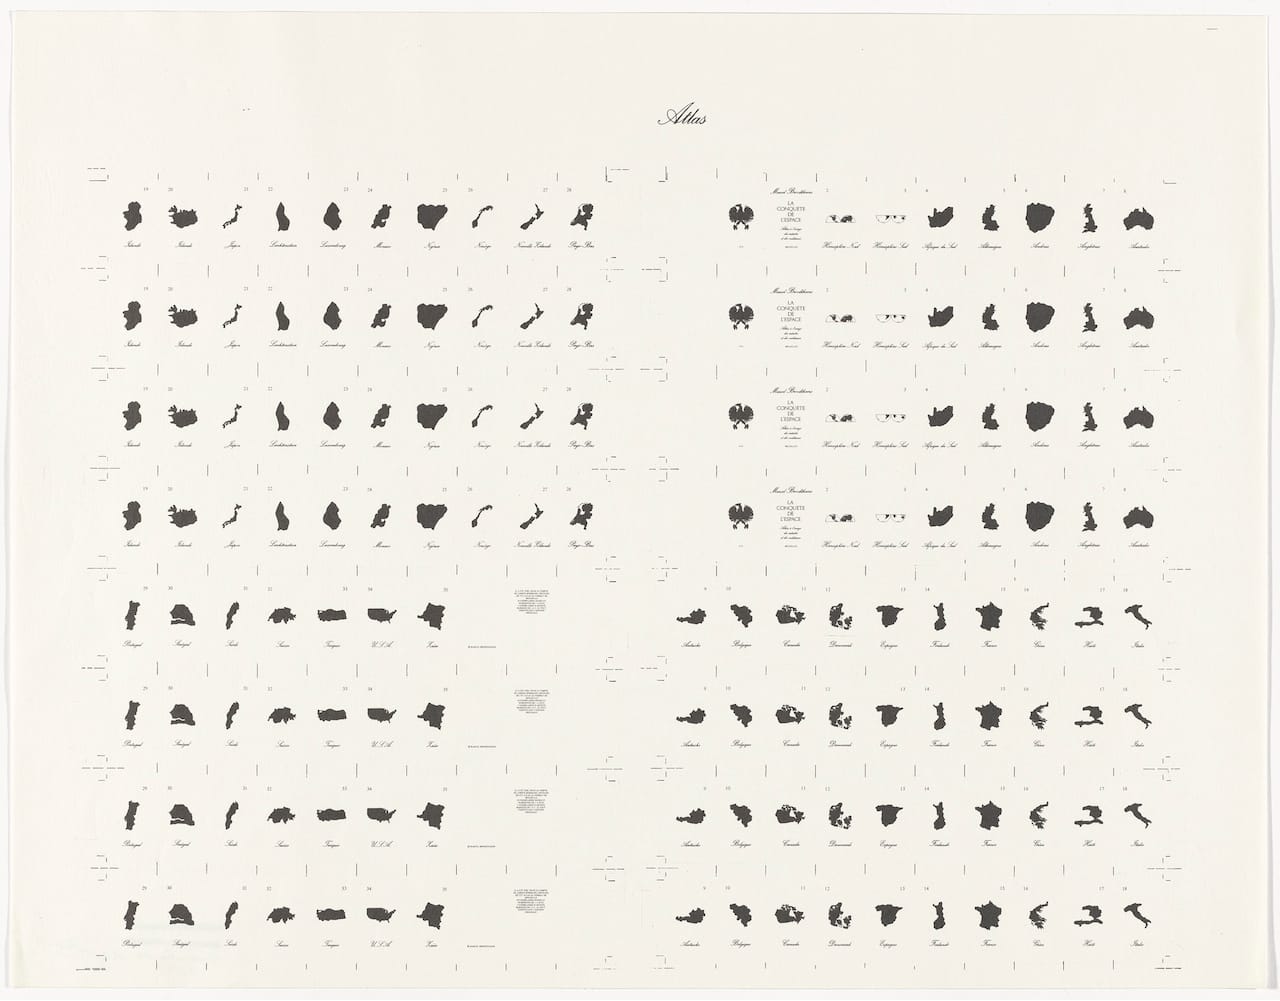 Atlas
19 20 21 22 23 24 25 26 27 28
Irlande Islande Japon Liechtenstein Luxembourg Monaco Nigeria Norvège Nouvelle Zélande Pays-Bas
Marcel Broodthaers 2 3 4 5 6 7 8
LA
CONQUETE
DE
L'ESPACE
Atlas à l'usage
des artistes
et des militaires
Hémisphère Nord Hémisphère Sud Afrique du Sud Allemagne Andorre Angleterre Australie
19 20 21 22 23 24 25 26 27 28
Irlande Islande Japon Liechtenstein Luxembourg Monaco Nigeria Norvège Nouvelle Zélande Pays-Bas
Marcel Broodthaers 2 3 4 5 6 7 8
LA
CONQUETE
DE
L'ESPACE
Atlas à l'usage
des artistes
et des militaires
Hémisphère Nord Hémisphère Sud Afrique du Sud Allemagne Andorre Angleterre Australie
19 20 21 22 23 24 25 26 27 28
Irlande Islande Japon Liechtenstein Luxembourg Monaco Nigeria Norvège Nouvelle Zélande Pays-Bas
Marcel Broodthaers 2 3 4 5 6 7 8
LA
CONQUETE
DE
L'ESPACE
Atlas à l'usage
des artistes
et des militaires
Hémisphère Nord Hémisphère Sud Afrique du Sud Allemagne Andorre Angleterre Australie
19 20 21 22 23 24 25 26 27 28
Irlande Islande Japon Liechtenstein Luxembourg Monaco Nigeria Norvège Nouvelle Zélande Pays-Bas
Marcel Broodthaers 2 3 4 5 6 7 8
LA
CONQUETE
DE
L'ESPACE
Atlas à l'usage
des artistes
et des militaires
Hémisphère Nord Hémisphère Sud Afrique du Sud Allemagne Andorre Angleterre Australie
29 30 31 32 33 34 35
Portugal Sénégal Suède Suisse Turquie U.S.A. Zaïre
9 10 11 12 13 14 15 16 17 18
Autriche Belgique Canada Danemark Espagne Finlande France Grèce Haïti Italie
29 30 31 32 33 34 35
Portugal Sénégal Suède Suisse Turquie U.S.A. Zaïre
9 10 11 12 13 14 15 16 17 18
Autriche Belgique Canada Danemark Espagne Finlande France Grèce Haïti Italie
29 30 31 32 33 34 35
Portugal Sénégal Suède Suisse Turquie U.S.A. Zaïre
9 10 11 12 13 14 15 16 17 18
Autriche Belgique Canada Danemark Espagne Finlande France Grèce Haïti Italie
29 30 31 32 33 34 35
Portugal Sénégal Suède Suisse Turquie U.S.A. Zaïre
9 10 11 12 13 14 15 16 17 18
Autriche Belgique Canada Danemark Espagne Finlande France Grèce Haïti Italie